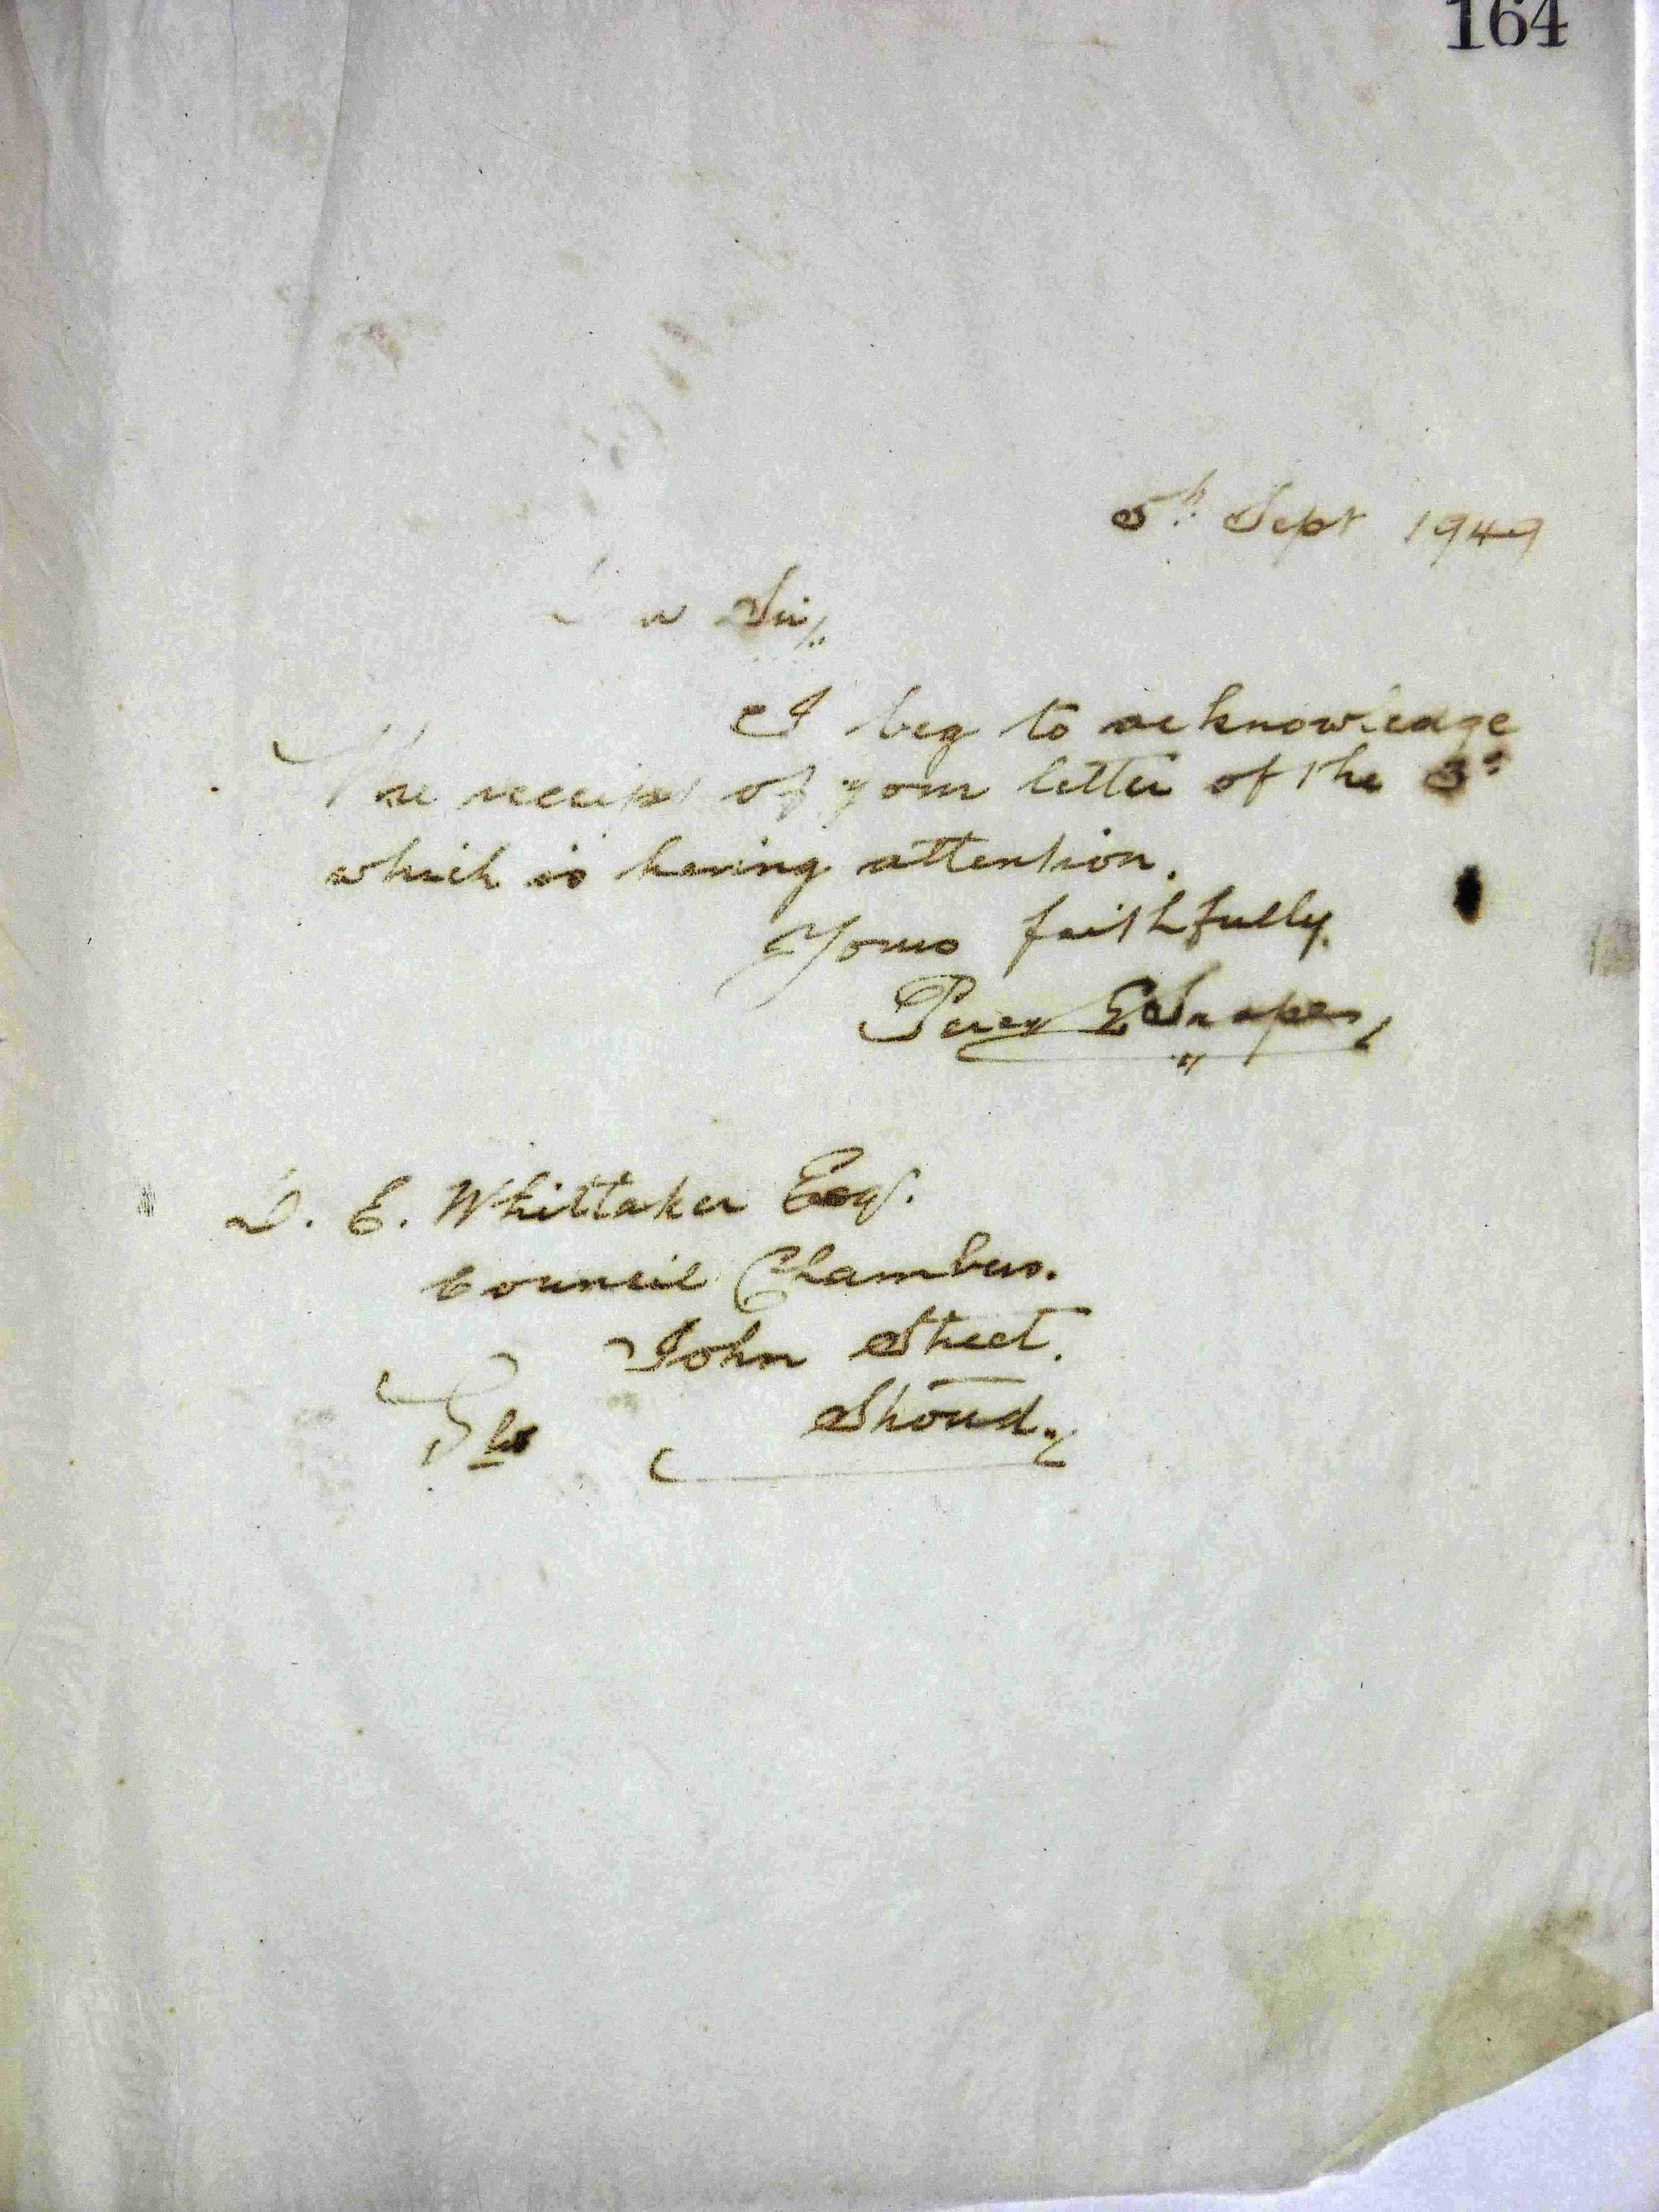 164
5th Sept 1949
Sir,
I beg to acknowledge
the receipt of your letter of the 3rd
which is having attention.
Yours faithfully,
Percy E
D. E. Whittaker Esq.
Council Chambers.
John Street.
Stroud.